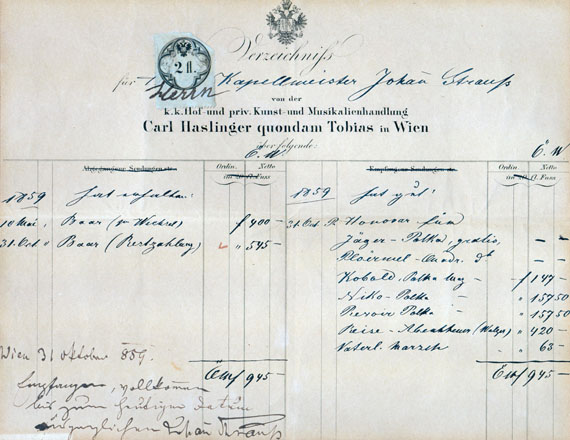 2 fl.
Verzeichniß
für Herrn Kapellmeister Johañ Strauß
von der
k. k. Hof- und priv. Kunst- und Musikalienhandlung
Carl Haslinger quondam Tobias in Wien
über folgende:
Ö. W. Ö. W.
Abgegangene Sendungen etc. Ordin. Netto Empfang von Sendungen etc. Ordin. Netto
im fl. Fuss im fl. Fuss
1859 hat erhalten: 1859 hat gut:
10 Mai Baar f 400 – 31. Oct. P. Honorar für
31. Oct. " Baar (Restzahlung) " 545 – Jäger-Polka, gratis, – –
Ploërmel-Quadr. dto – –
Kobold, Polka Maz – f 147 –
Niko-Polka – " 157 50
Polka – " 157 50
Reise-Abentheuer (Walzer) " 420 –
Vaterl. Marsch " 63 –
Wien 31 October 859.
ÖWf 945 – ÖWf 945 –
Empfangen, vollkommen
bis zum heutigen Datum
ausgeglichen Johañ Strauß